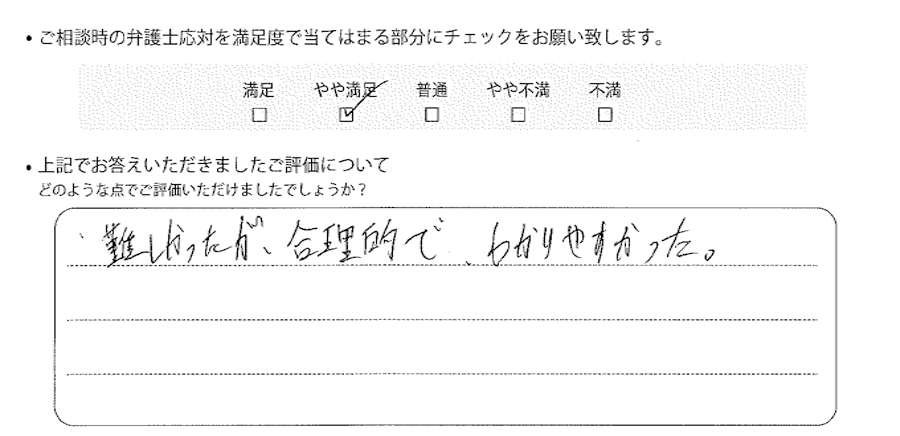 • ご相談時の弁護士応対を満足度で当てはまる部分にチェックをお願い致します。
満足 やや満足 普通 やや不満 不満
□ ☑ □ □ □
• 上記でお答えいただきましたご評価について
どのような点でご評価いただけましたでしょうか？
難しかったが、合理的で、わかりやすかった。